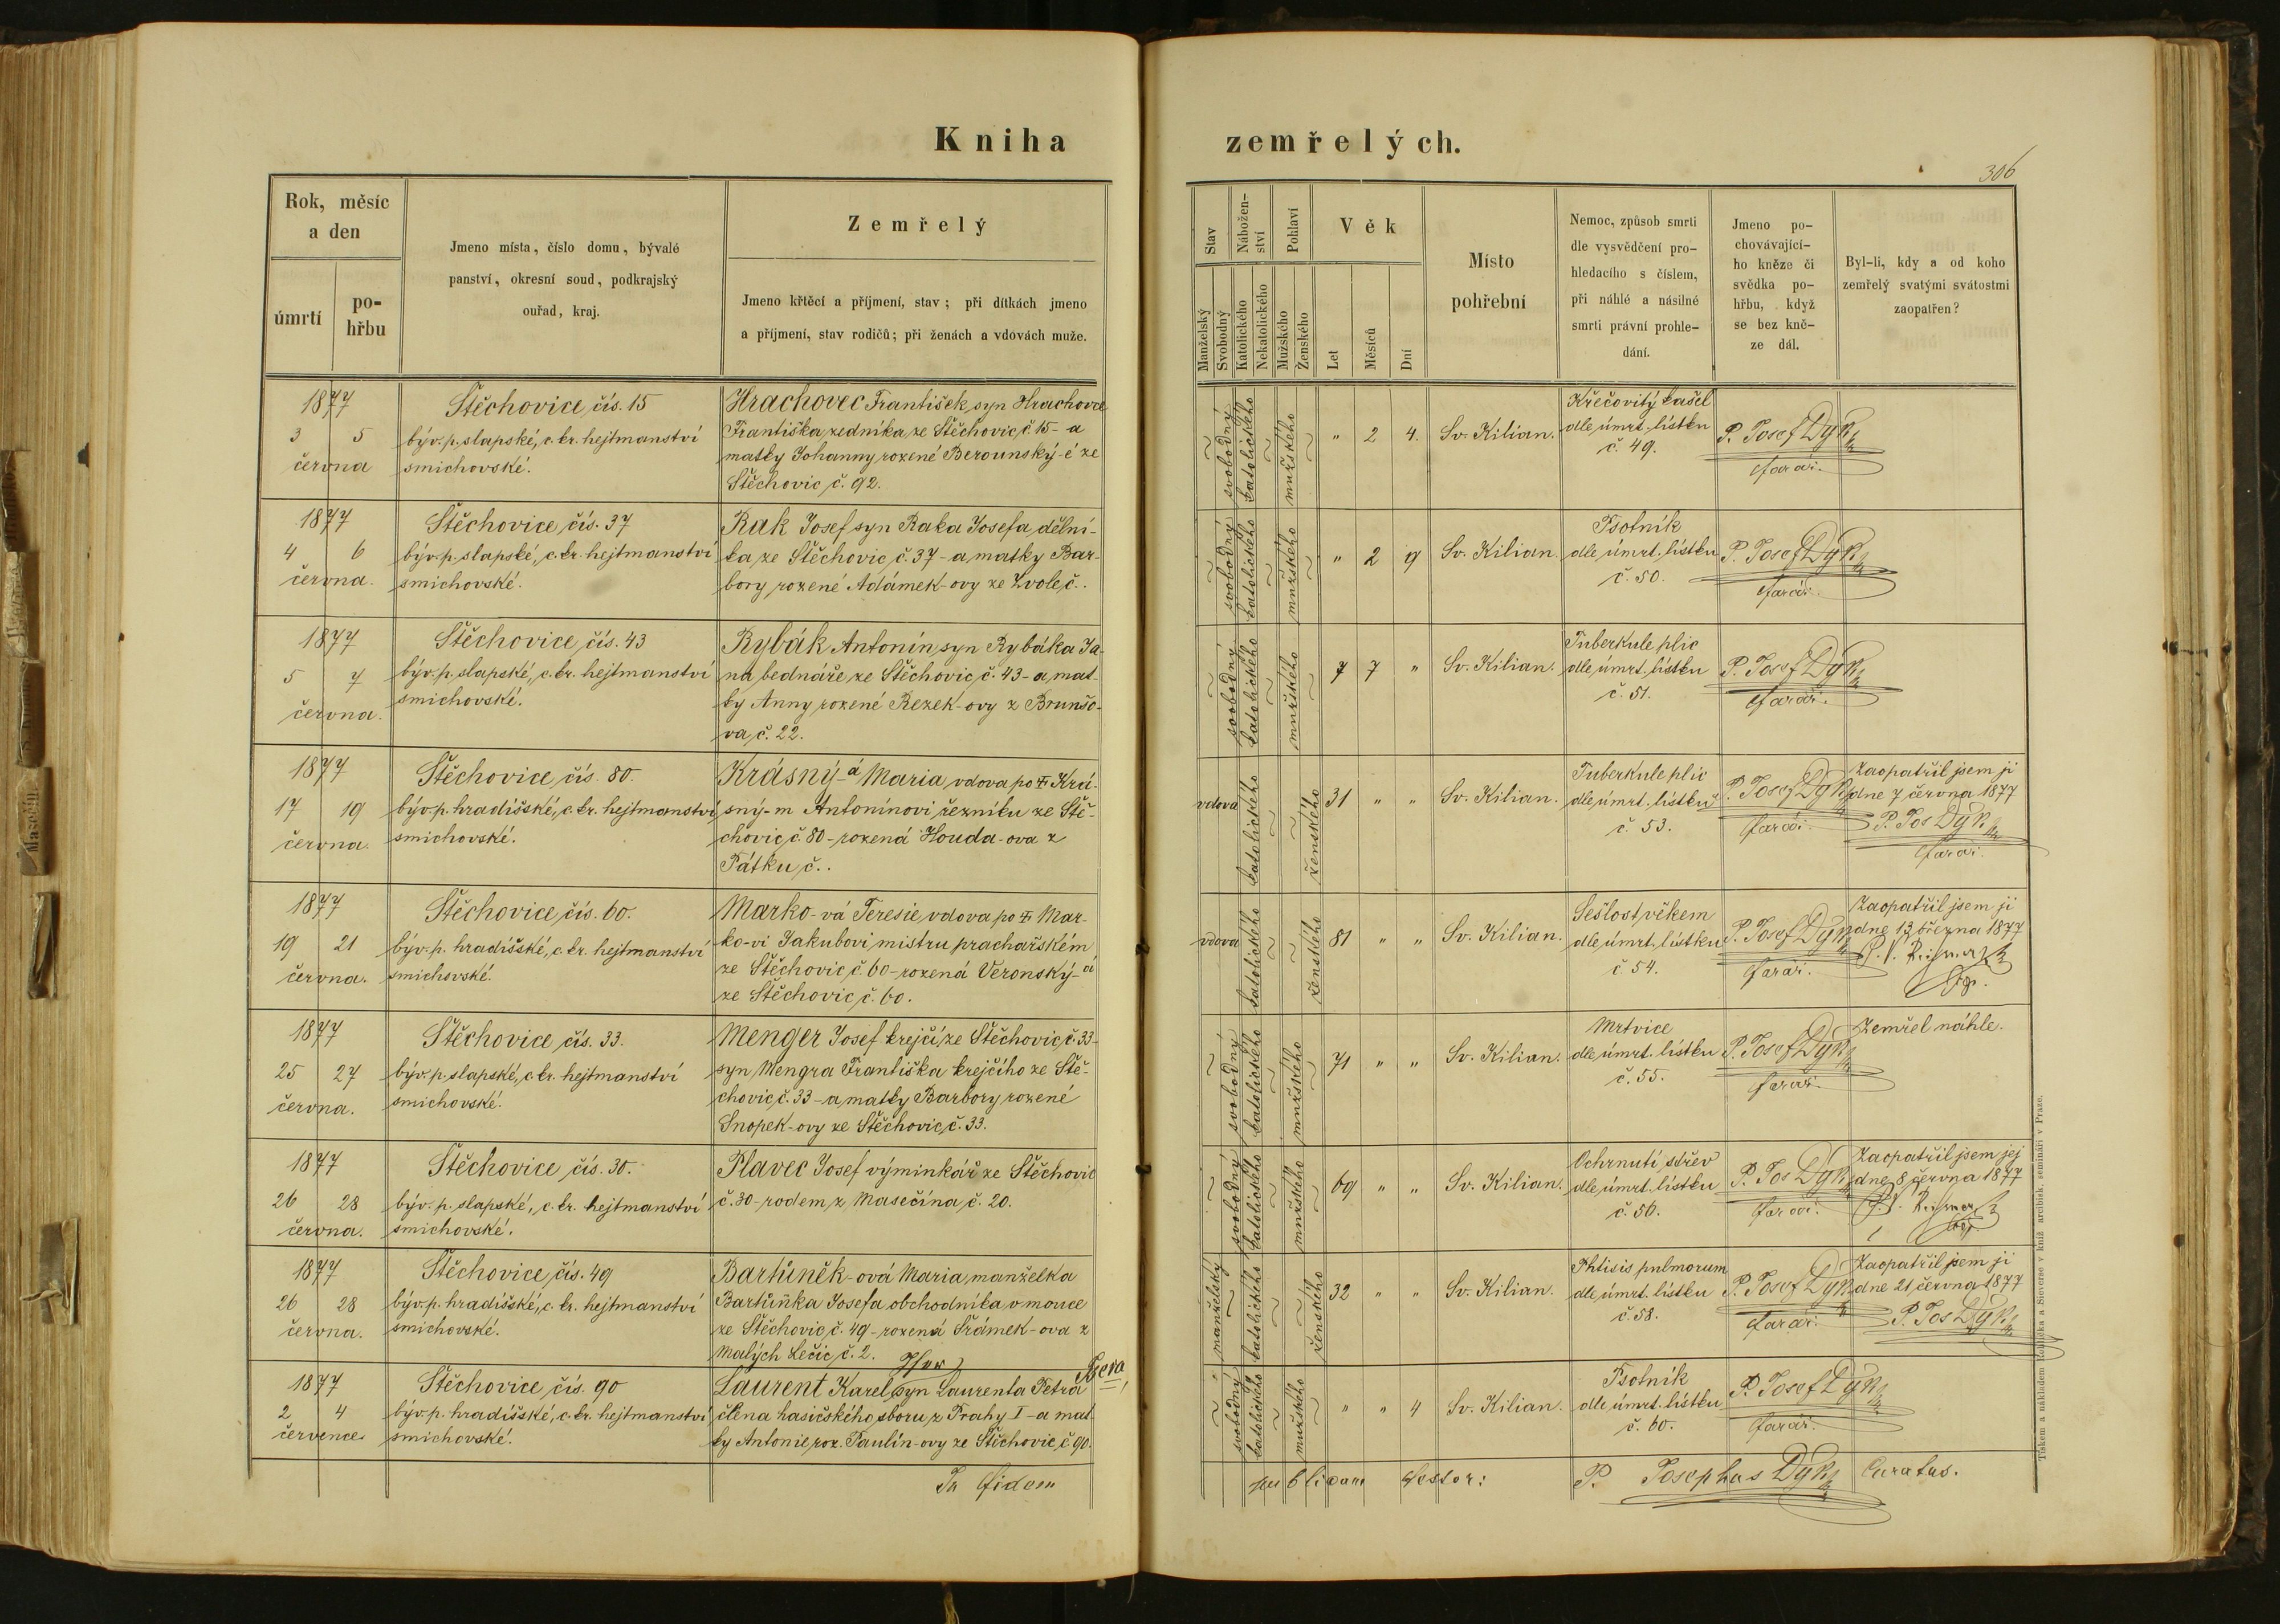 Kniha zemřelých.
306
Rok, měsíc
a den
úmrtí
po-
hřbu
Jmeno místa, číslo domu, bývalé
panství, okresní soud, podkrajský
ouřad, kraj.
Zemřelý
Jmeno křtěcí a příjmení, stav; při dítkách jmeno
a příjmení, stav rodičů; při ženách a vdovách muže.
Stav
Manželský
Svobodný
Nábožen-
ství
Katolického
Nekatolického
Pohlaví
Mužského
Ženského
Věk
Let
Měsíců
Dní
Místo
pohřební
Nemoc, způsob smrti
dle vysvědčení pro-
hledacího s číslem,
při náhlé a násilné
smrti právní prohle-
dání.
Jmeno po-
chovávající-
ho kněze či
svědka po-
hřbu, když
se bez kně-
ze dál.
Byl-li, kdy a od koho
zemřelý svatými svátostmi
zaopatřen?
1877
3 5
června
Štěchovice, čís. 15
býv. p. slapské, c. kr. hejtmanství
smichovské.
Hrachovec František, syn Hrachovce
Františka, zedníka, ze Štěchovic, č. 15 - a
matky Johanny, rozené Berounský-é ze
Štěchovic, č. 92.
svobodný
katolického
mužského
" 2 4.
Sv. Kilian.
Křečovitý kašel
dle úmrt. lístku
č. 49.
P. Josef Dyk
farář.
1877
4 6
června.
Štěchovice, čís. 37
býv. p. slapské, c. kr. hejtmanství
smichovské.
Rak Josef syn Raka Josefa, dělní-
ka, ze Štěchovic, č. 37 - a matky Bar-
bory, rozené Adámek-ovy ze Zvole, č. .
svobodný
katolického
mužského
" 2 9
Sv. Kilian
Psotník
dle úmrt. lístku
č. 50.
P. Josef Dyk
farář.
1877
5 7
června.
Štěchovice, čís. 43
býv. p. slapské, c. kr. hejtmanství
smichovské.
Rybák Antonín, syn Rybáka Ja-
na bednáře ze Štěchovic, č. 43 - a mat-
ky Anny, rozené Rezek-ovy z Brunšo-
va, č. 22.
svobodný
katolického
mužského
7 7 "
Sv. Kilian.
Tuberkule plic
dle úmrt. lístku
č. 51.
P. Josef Dyk
farář.
1877
17 19
června.
Štěchovice, čís. 80.
býv. p. hradíšské, c. kr. hejtmanství
smichovské.
Krásný-á Maria, vdova po Krá-
sný-m Antonínovi, řezníku ze Ště-
chovic, č. 80 - rozená Houda-ova z
Pátku, č. .
vdova
katolického
ženského
31 " "
Sv. Kilian.
Tuberkule plic
dle úmrt. lístku
č. 53.
P. Josef Dyk
farář.
Zaopatřil jsem ji
dne 7 června 1877
P. Jos Dyk
farář.
1877
19 21
června.
Štěchovice, čís. 60.
býv. p. hradíšské, c. kr. hejtmanství
smichovské.
Marko-vá Teresie, vdova po Mar-
ko-vi Jakubovi, mistru prachařském
ze Štěchovic, č. 60 - rozená Veronský-á
ze Štěchovic, č. 60.
vdova
katolického
ženského
81 " "
Sv. Kilian.
Sešlost věkem
dle úmrt. lístku
č 54.
P. Josef Dyk
farář.
Zaopatřil jsem ji
dne 13 března 1877
1877
25 27
června.
Štěchovice, čís. 33.
býv. p. slapské, c. kr. hejtmanství
smichovské.
Menger Josef krejčí, ze Štěchovic, č. 33 -
syn Mengra Františka krejčího ze Ště-
chovic, č. 33 - a matky Barbory, rozené
Snopek-ovy ze Štěchovic, č. 33.
svobodný
katolického
mužského
71 " "
Sv. Kilian.
Mrtvice
dle úmrt. lístku
č. 55.
P. Josef Dyk
farář.
Zemřel náhle.
1877
26 28
června.
Štěchovice, čís. 30.
býv. p. slapské, c. kr. hejtmanství
smichovské.
Plavec Josef výminkář ze Štěchovic
č. 30 - rodem z Masečína, č. 20.
svobodný
katolického
mužského
69 " "
Sv. Kilian.
Ochrnutí střev
dle úmrt. lístku
č. 56.
P. Jos Dyk
farář.
Zaopatřil jsem jej
dne 8 června 1877
1877
26 28
června.
Štěchovice, čís. 49
býv. p. hradíšské, c. kr. hejtmanství
smichovské.
Bartůněk-ová Maria, manželka
Bartůňka Josefa, obchodníka v mouce
ze Štěchovic, č. 49 - rozená Šrámek-ova z
Malých Lečic, č. 2.
manželský
katolického
ženského
32 " "
Sv. Kilian.
Phtisis pulmorum
dle úmrt. lístku
č. 58.
P. Josef Dyk
farář.
Zaopatřil jsem ji
dne 21 června 1877
P. Jos Dyk
1877
2 4
července
Štěchovice, čís. 90
býv. p. hradíšské, c. kr. hejtmanství
smichovské.
Laurent Karel, syn Laurenta Petra
člena hasičského sboru z Prahy I - a mat-
ky Antonie, roz. Paulín-ovy ze Štěchovic, č 90.
svobodný
katolického
mužského
" " 4
Sv. Kilian.
Psotník
dle úmrt. lístku
č. 60.
P. Josef Dyk
farář.
In fidem publicam testor: P. Josephus Dyk Curatus.
Tiskem a nákladem Rohlíčka a Sieverse v kníž. arcibisk. semináři v Praze.
Masečín